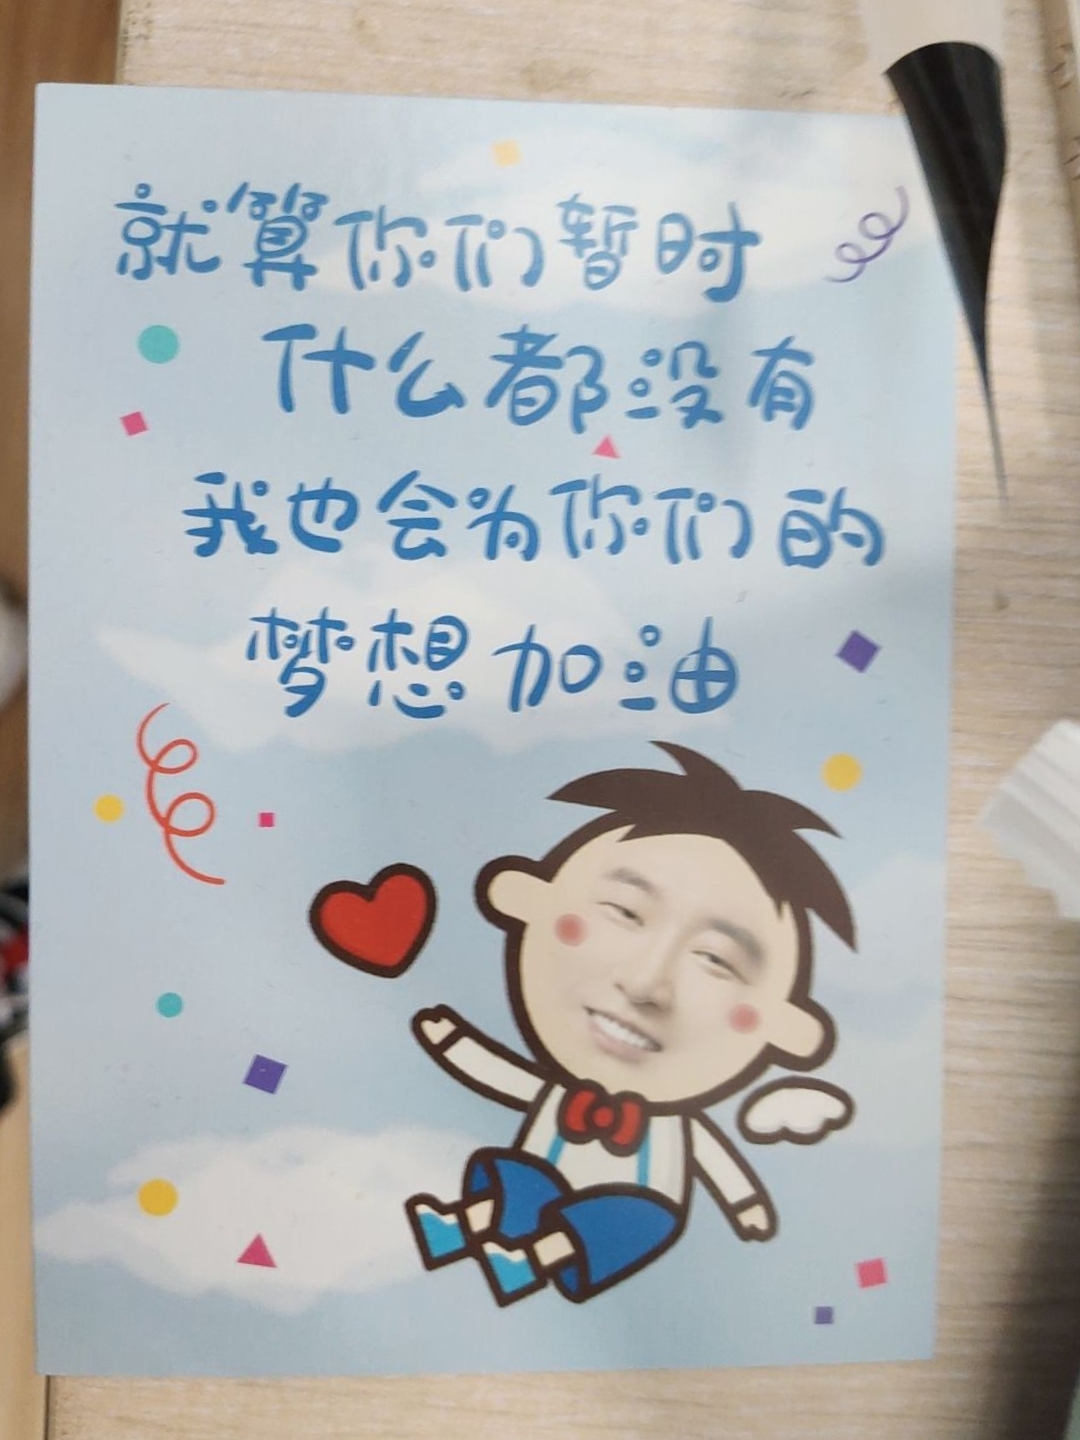 就算你们暂时
什么都没有
我也会为你们的
梦想加油